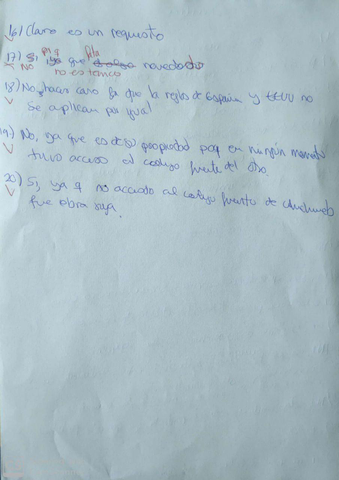 16) Claro es un requisito
17) Si, pq ya que falta novedad
NO no es técnico
18) No, hacer caso ya que la reglas de España y EEUU no
se aplican por igual
19) No, ya que es de su propiedad pq en ningún momento
tuvo acceso al codigo fuente del otro.
20) Si, ya q no accedió al codigo fuente de
fue obra suya.